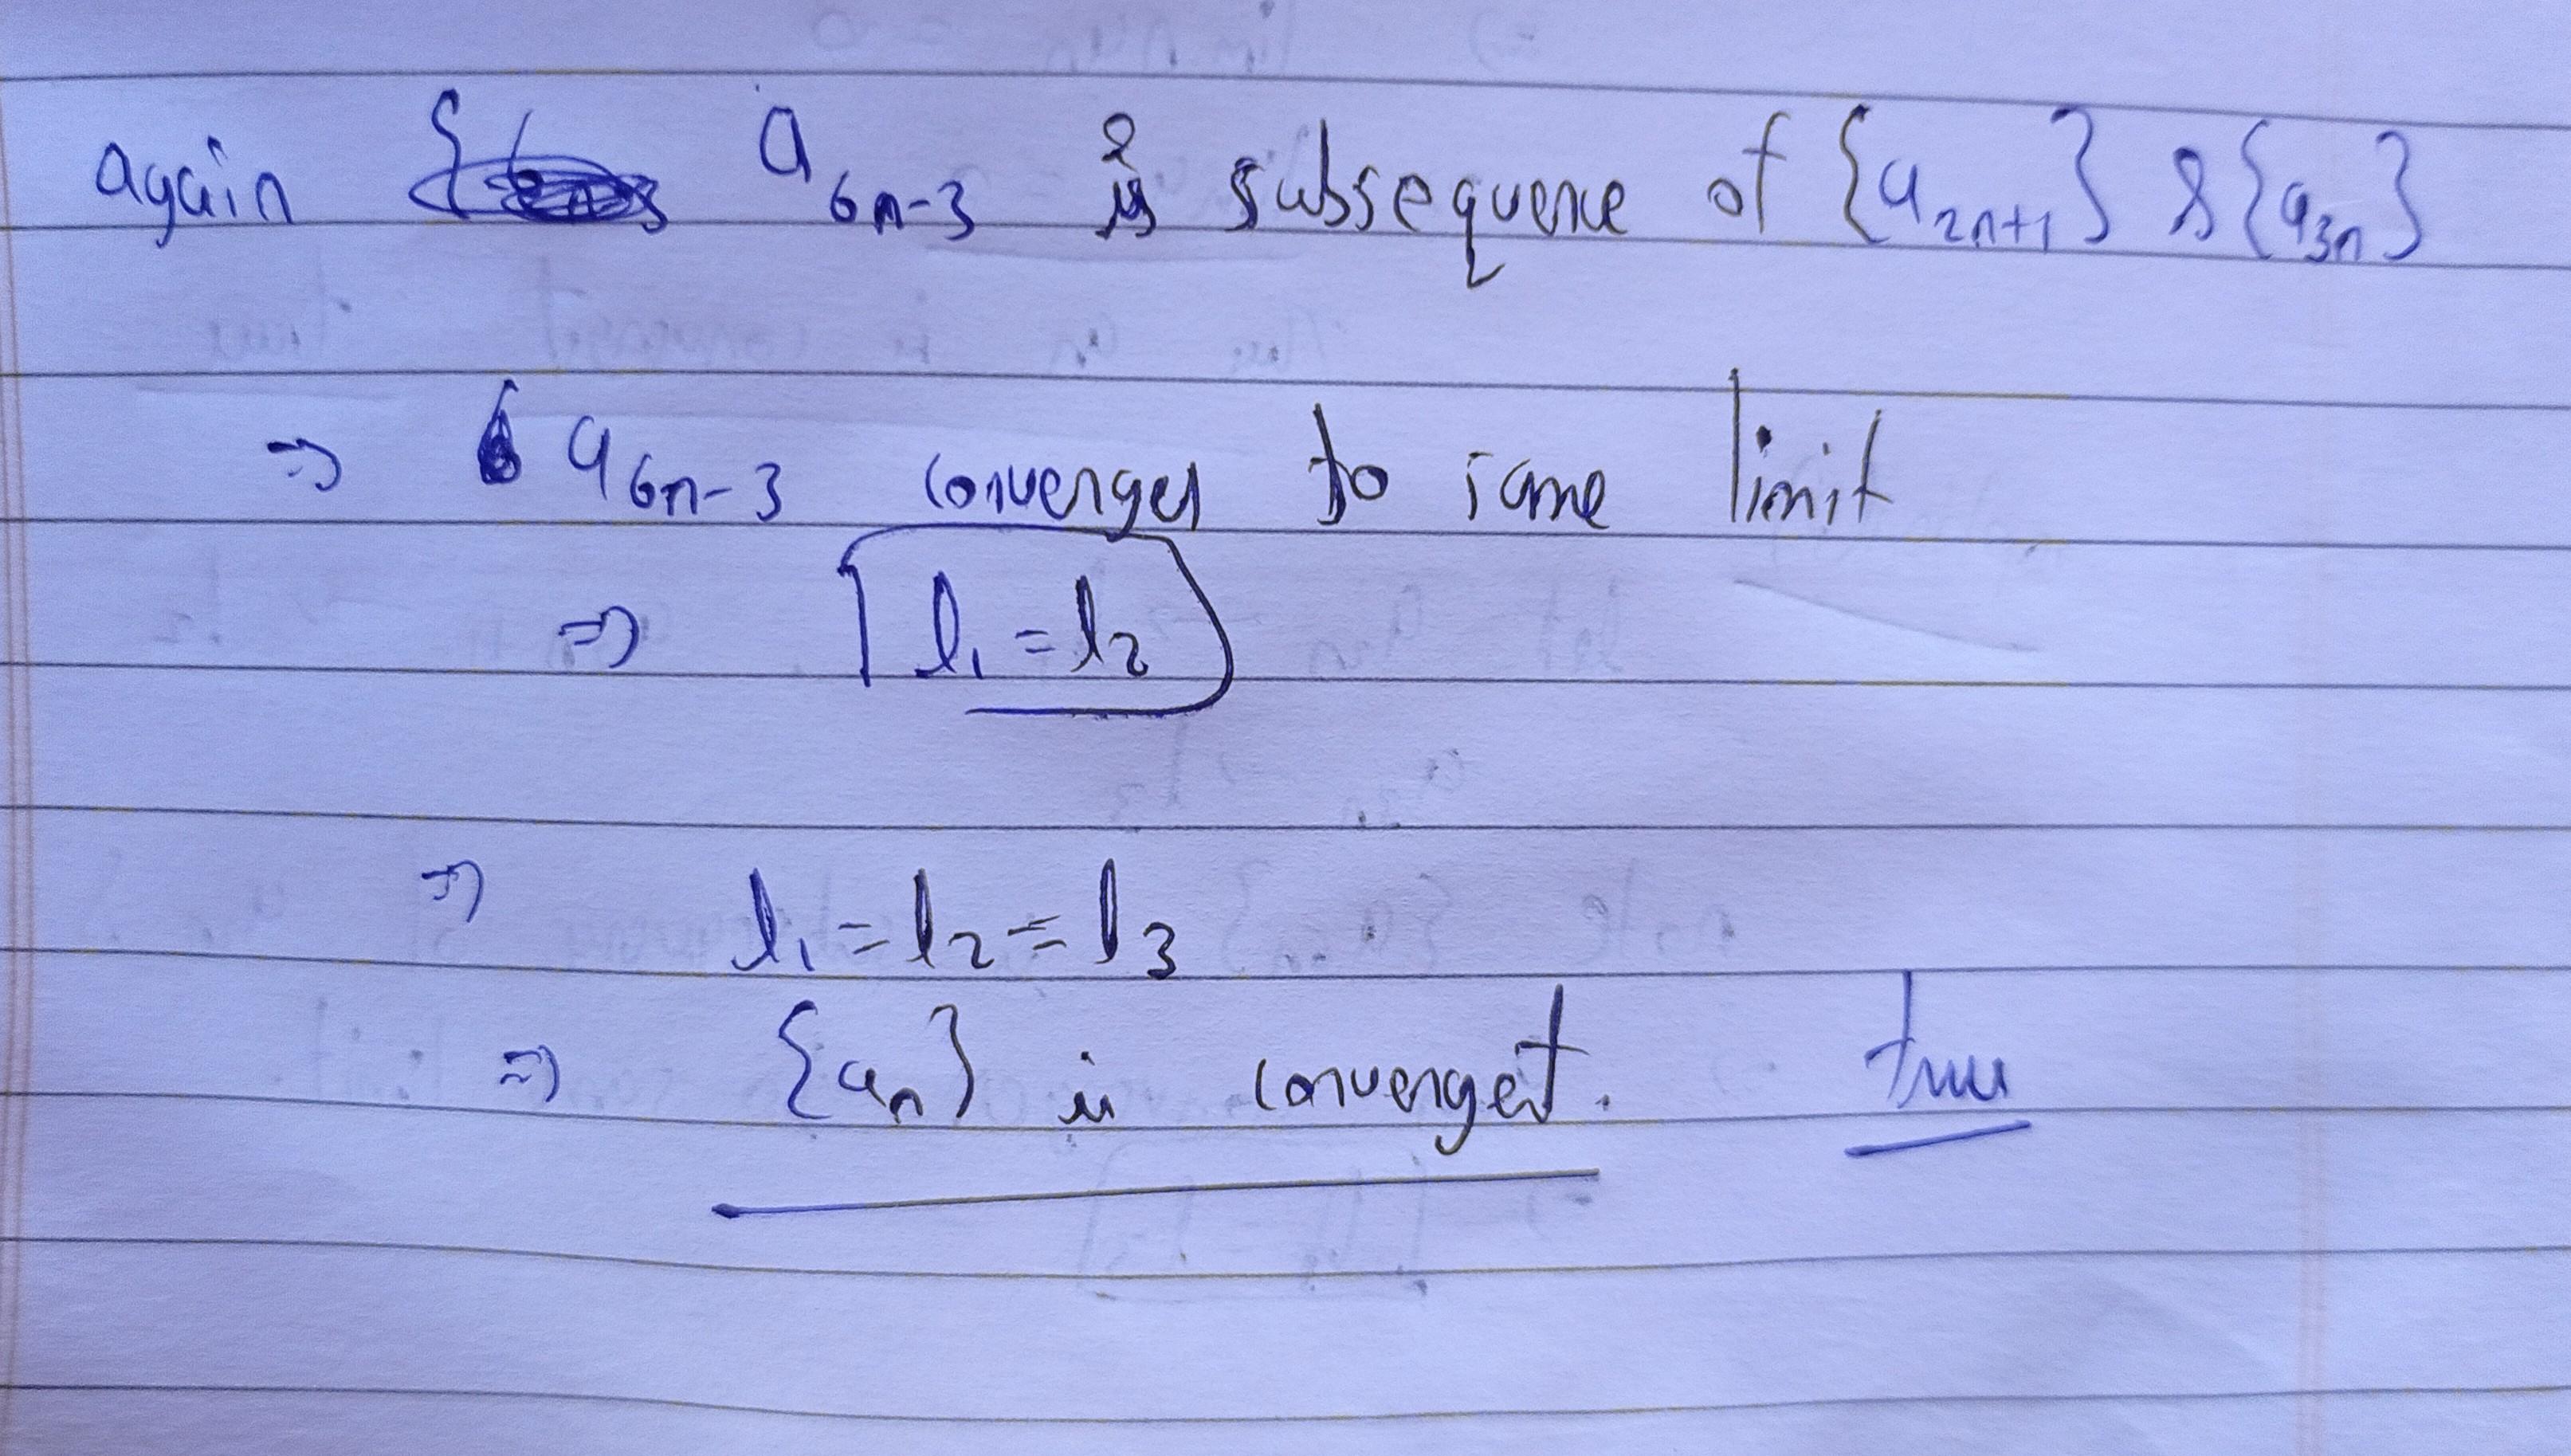 again a6n-3 is subsequence of {a2n+1} & {a3n}
=> a6n-3 converges to same limit
=> l1 = l2
=> l1 = l2 = l3
=> {an} is convergent. true